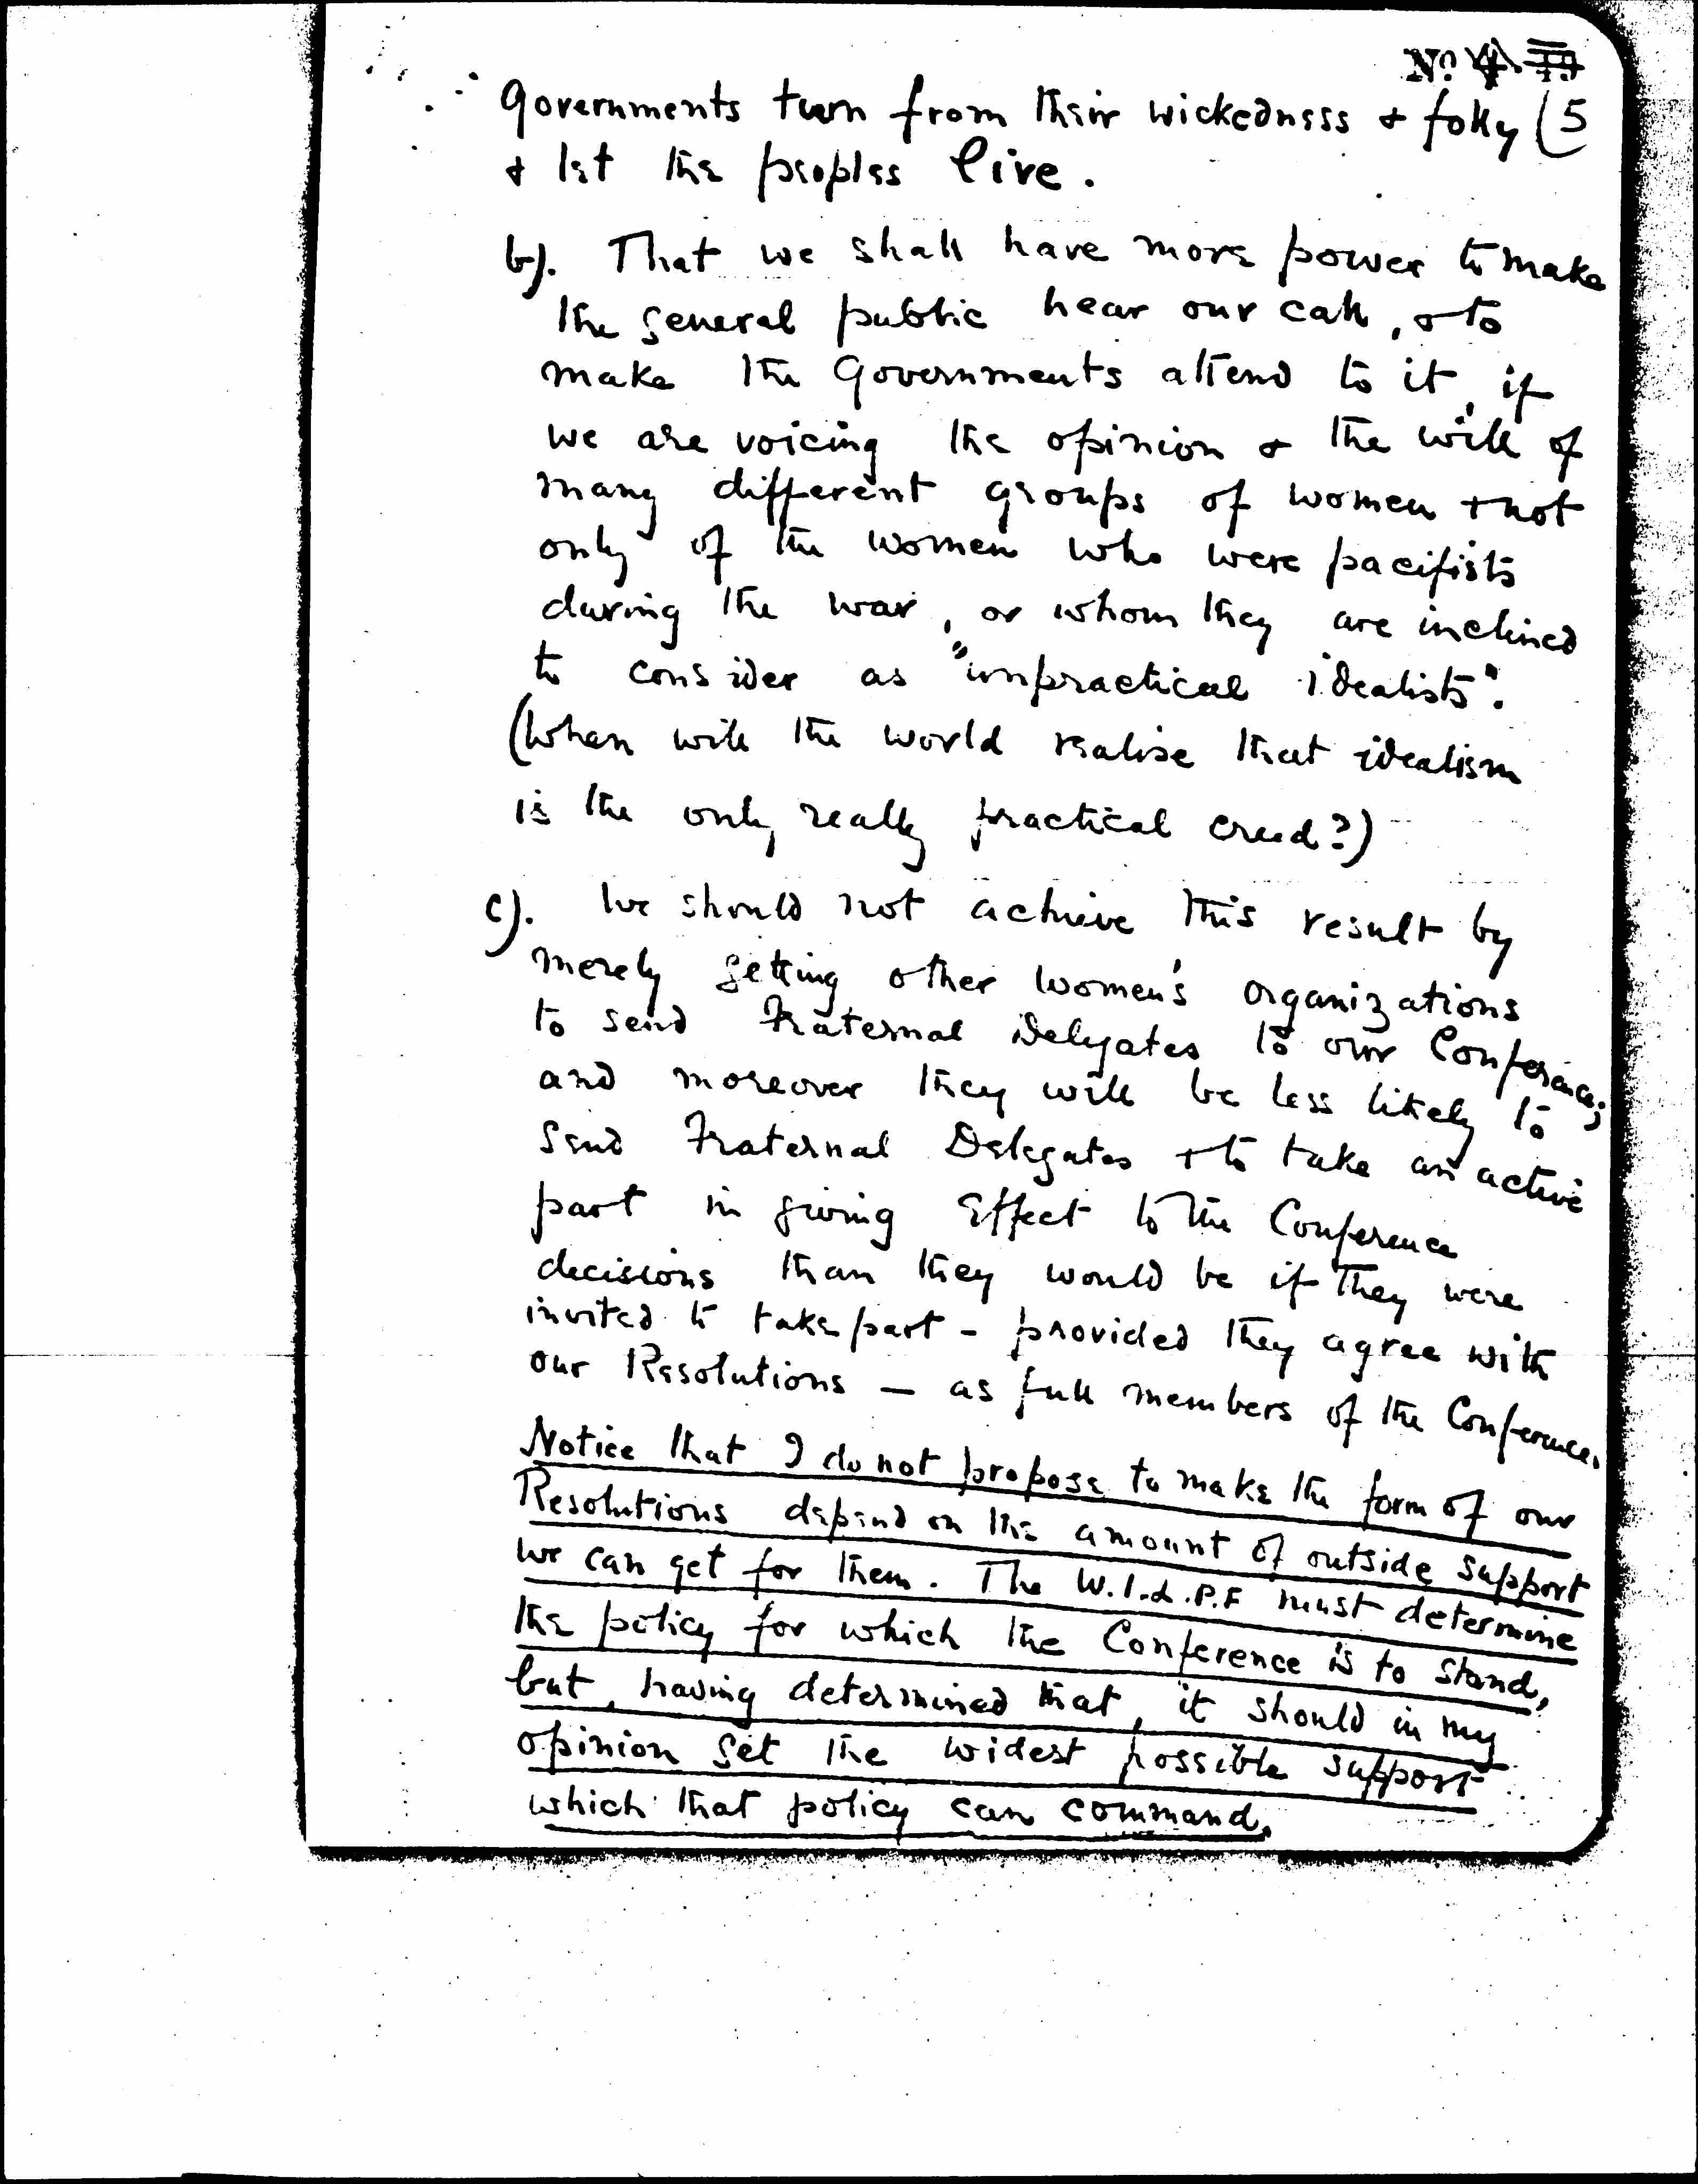 No.
Governments turn from their wickedness & folly (5
& let the peoples live.
b). That we shall have more power to make
the general public hear our call, & to
make the Governments attend to it, if
we are voicing the opinion & the will of
many different groups of women & not
only of the women who were pacifists
during the war, or whom they are inclined
to consider as "unpractical idealists".
(When will the world realise that idealism
is the only really practical creed?)
c). We should not achieve this result by
merely getting other women's organizations
to send Fraternal Delegates to our Conference;
and moreover they will be less likely to
send Fraternal Delegates & to take an active
part in giving effect to the Conference
decisions than they would be if they were
invited to take part - provided they agree with
our Resolutions — as full members of the Conference.
Notice that I do not propose to make the form of our
Resolutions depend on the amount of outside support
we can get for them. The W.I.L.P.F must determine
the policy for which the Conference is to stand,
but, having determined that, it should in my
opinion get the widest possible support
which that policy can command.